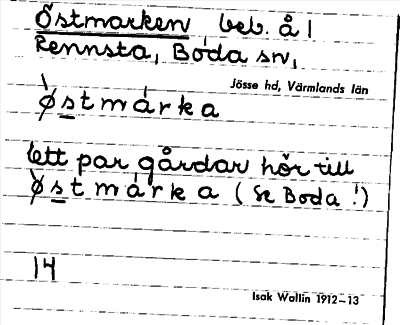 Östmarken, beb. å l
Rennsta, Boda sn,
Jösse hd, Värmlands län
østmárka
Ett par gårdar hör till
østmárka (Se Boda!)
14
Isak Wallin 1912–13